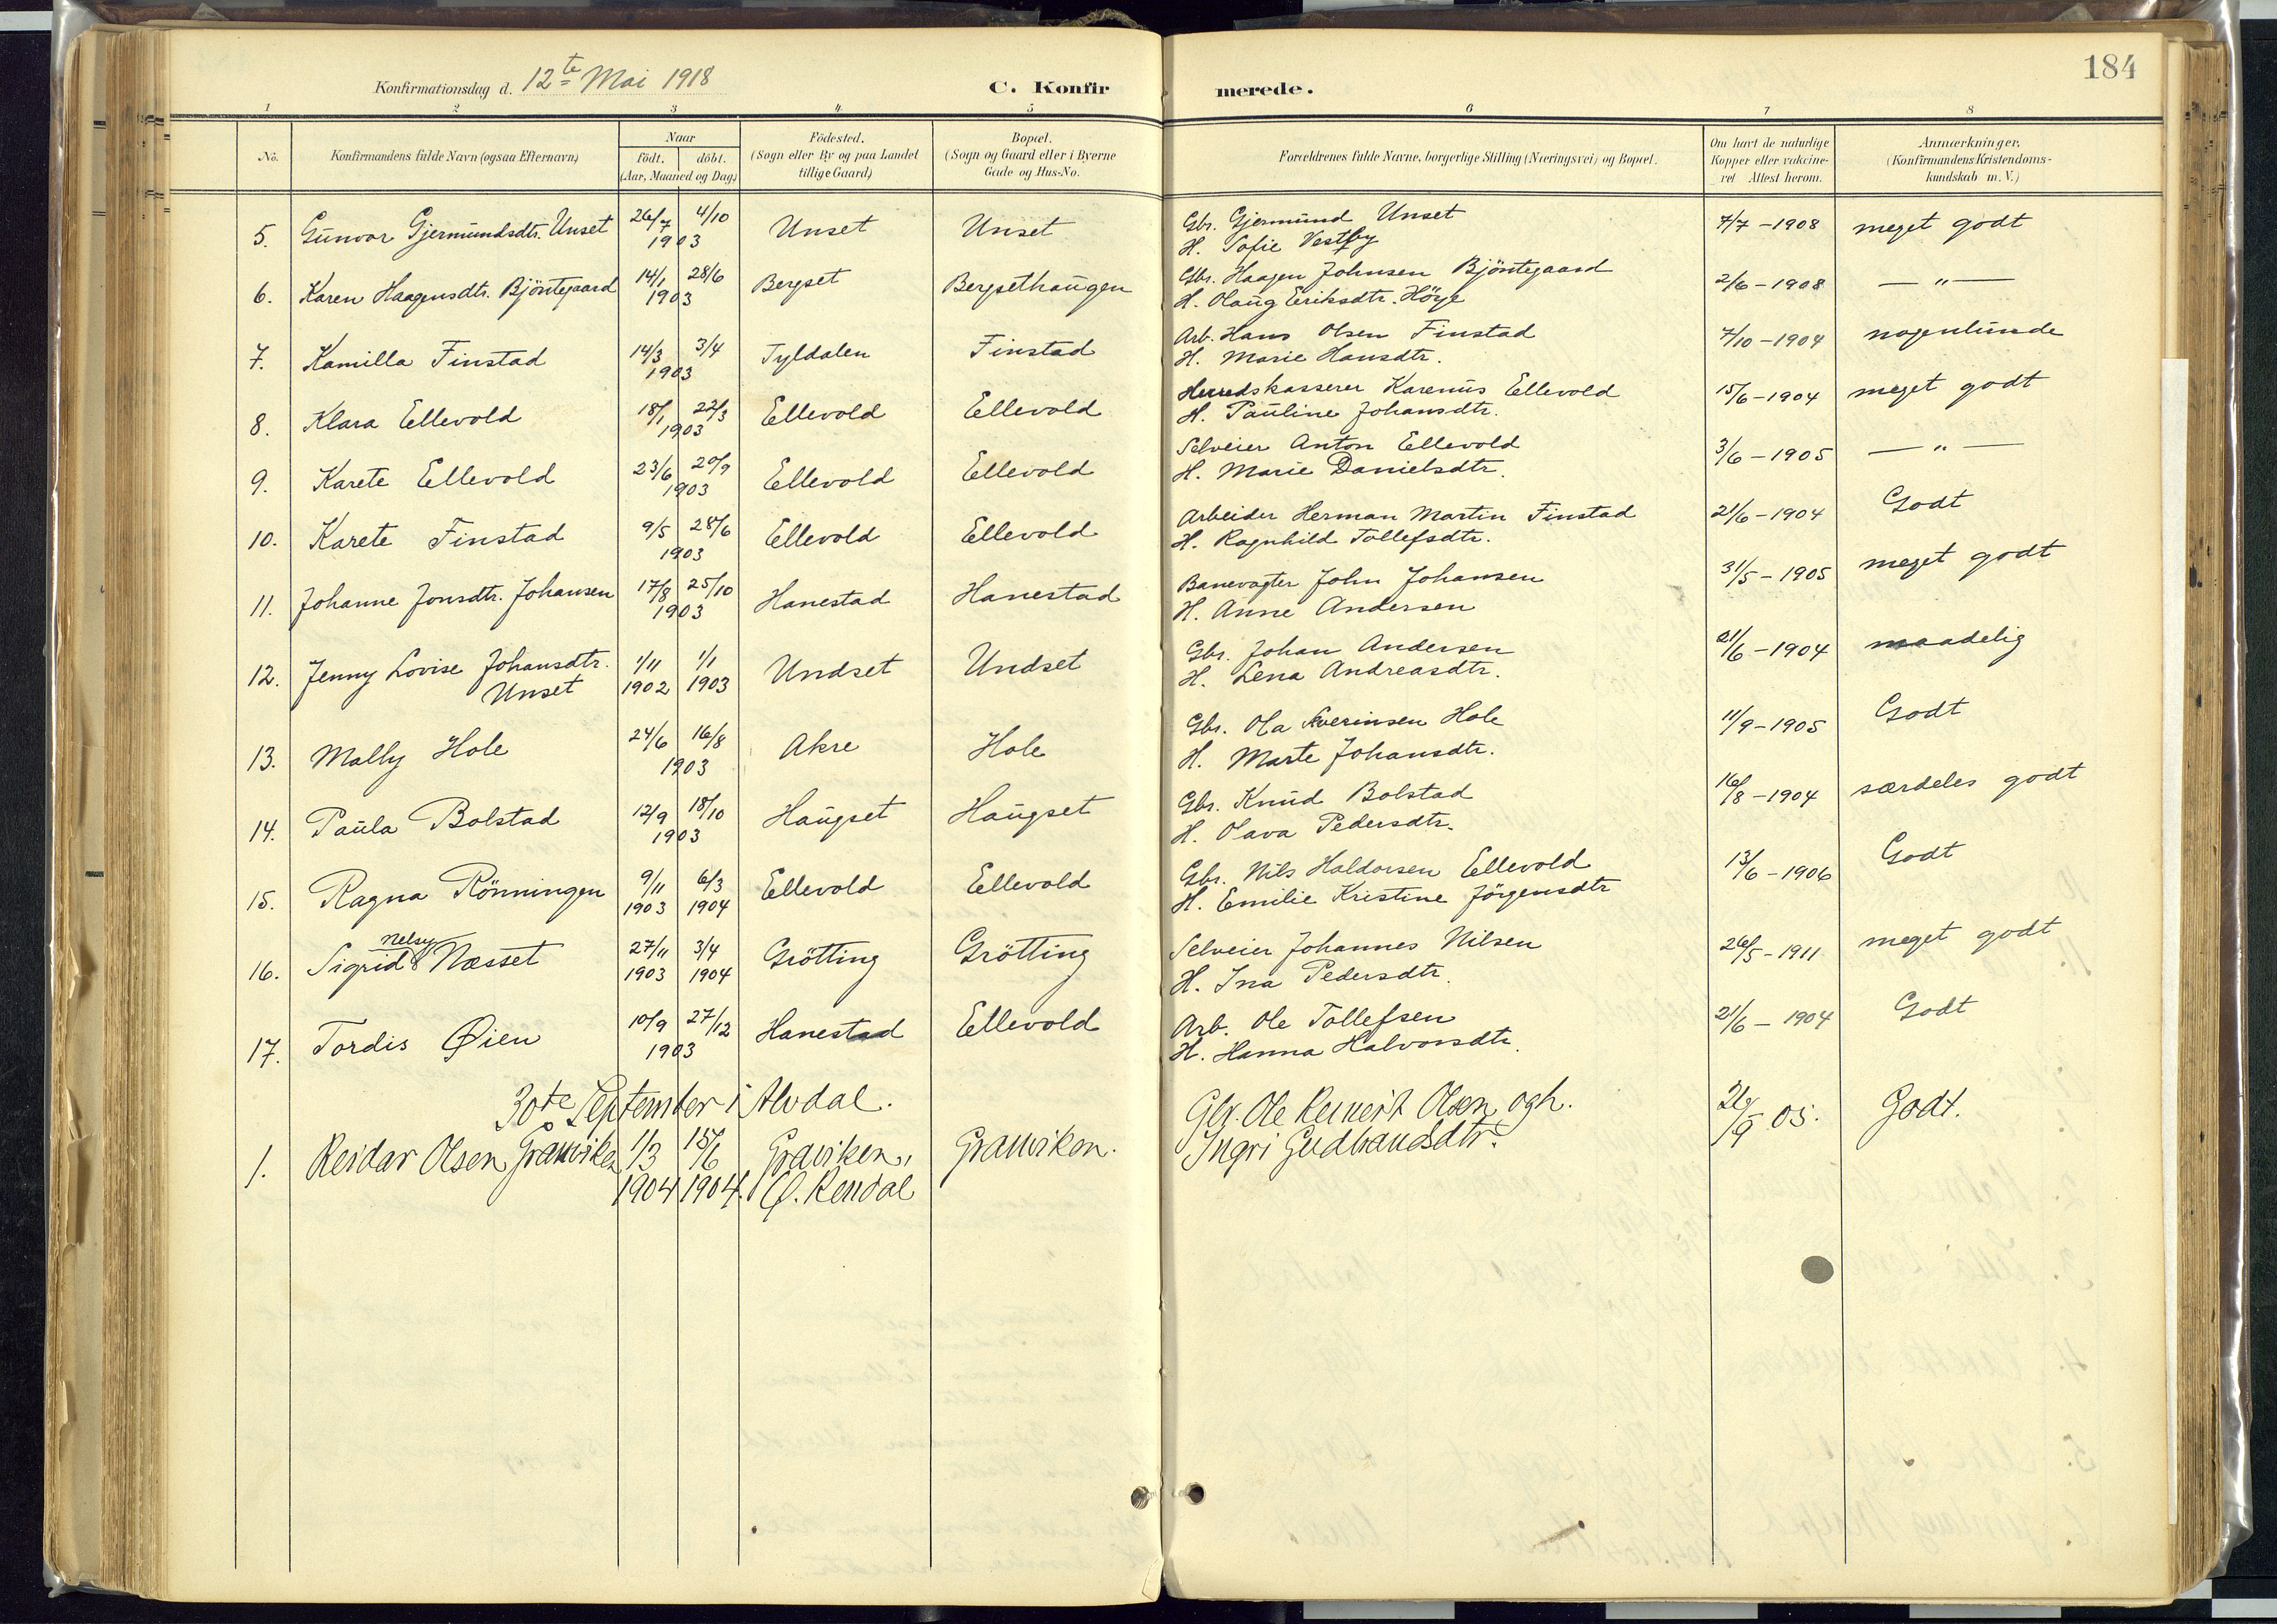 184
Konfirmationsdag d. 12te Mai 1918
C. Konfirmerede.
1 2 3 4 5 6 7 8
No. Konfirmandens fulde Navn (ogsaa Efternavn) Naar födt. döbt. (Aar, Maaned og Dag) Födested. (Sogn eller By og paa Landet tillige Gaard) Bopæl. (Sogn og Gaard eller i Byerne Gade og Hus-No. Forældrenes fulde Navne, borgerlige Stilling (Næringsvei) og Bopæl. Om havt de naturlige Kopper eller vakcineret Attest herom. Anmærkninger. (Konfirmandens Kristendomskundskab m. V.)
5. Gunvor Gjermundsdtr. Unset 26/7 4/10 1903 Unset Unset Gbr. Gjermund Unset 7/7 - 1908 meget godt
H. Sofie Vestby
6. Karen Haagensdtr. Bjöntegaard 14/1 28/6 1903 Bergset Bergsethaugen Gbr. Haagen Johnsen Bjöntegaard 2/6 - 1908 — " —
H. Olaug Eriksdtr. Höye
7. Kamilla Finstad 14/3 3/4 1903 Tyldalen Finstad Arb. Hans Olsen Finstad 7/10 - 1904 nogenlunde
H. Marie Hansdtr.
8. Klara Ellevold 18/1 22/3 1903 Ellevold Ellevold Herredskasserer Karenus Ellevold 15/6 - 1904 meget godt
H. Pauline Johansdtr.
9. Karete Ellevold 23/6 20/9 1903 Ellevold Ellevold Selveier Anton Ellevold 3/6 - 1905 — " —
H. Marie Danielsdtr.
10. Karete Finstad 9/5 28/6 1903 Ellevold Ellevold Arbeider Herman Martin Finstad 21/6 - 1904 Godt
H. Ragnhild Tollefsdtr.
11. Johanne Jonsdtr. Johansen 17/8 25/10 1903 Hanestad Hanestad Banevogter John Johansen 31/5 - 1905 meget godt
H. Anne Andersen
12. Jenny Lovise Johansdtr. Unset 1/11 1902 1/1 1903 Undset Undset Gbr. Johan Andersen 21/6 - 1904 maadelig
H. Lena Andreasdtr.
13. Mally Hole 24/6 16/8 1903 Akre Hole Gbr. Ola Sverinsen Hole 11/9 - 1905 Godt
H. Marte Johansdtr.
14. Paula Bolstad 12/9 18/10 1903 Haugset Haugset Gbr. Knud Bolstad 16/8 - 1904 særdeles godt
H. Olava Pedersdtr.
15. Ragna Rönningen 9/11 1903 6/3 1904 Ellevold Ellevold Gbr. Nils Haldorsen Ellevold 13/6 - 1906 Godt
H. Emilie Kristine Jörgensdtr
16. Sigrid Nelsy Næsset 27/11 1903 3/4 1904 Grötting Grötting Selveier Johannes Nilsen 26/5 - 1911 meget godt
H. Ina Pedersdtr.
17. Tordis Øien 10/9 27/12 1903 Hanestad Ellevold Arb. Ole Tollefsen 21/6 - 1904 Godt
H. Hanna Halvorsdtr.
30te September i Alvdal.
1. Reidar Olsen Granviken 1/3 1904 15/6 1904. Graviken, Ø. Rendal Granviken. Gbr. Ole Reinert Olsen og h. 26/9 05. Godt.
Ingri Gudbrandsdtr.